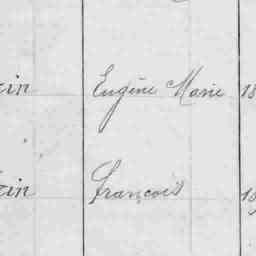 in Eugène Marie 18
in François 18